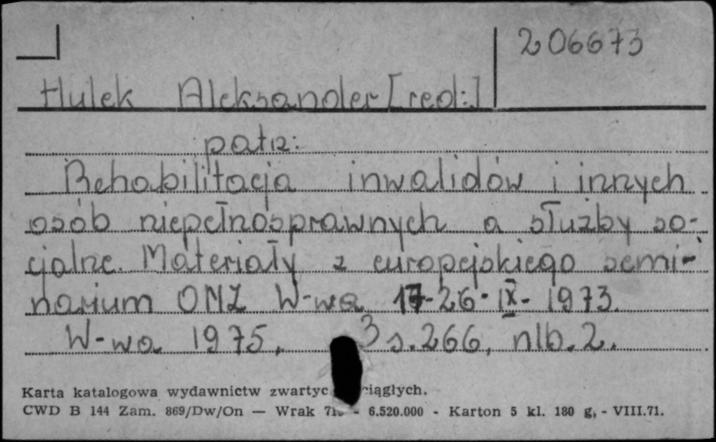 206673
Hulek Aleksander [red.]
patrz:
Rehabilitacja inwalidów i innych
osób niepełnosprawnych a służby so-
cjalne. Materiały z europejskiego semi-
narium ONZ W-wa 17-26-IX-1973.
W-wa 1975, s. 266, nlb. 2.
Karta katalogowa wydawnictw
CWD B 144 Zam. 869/Dw/On — Wrak - 6.520.000 - Karton 5 kl. 180 g, - VIII.71.